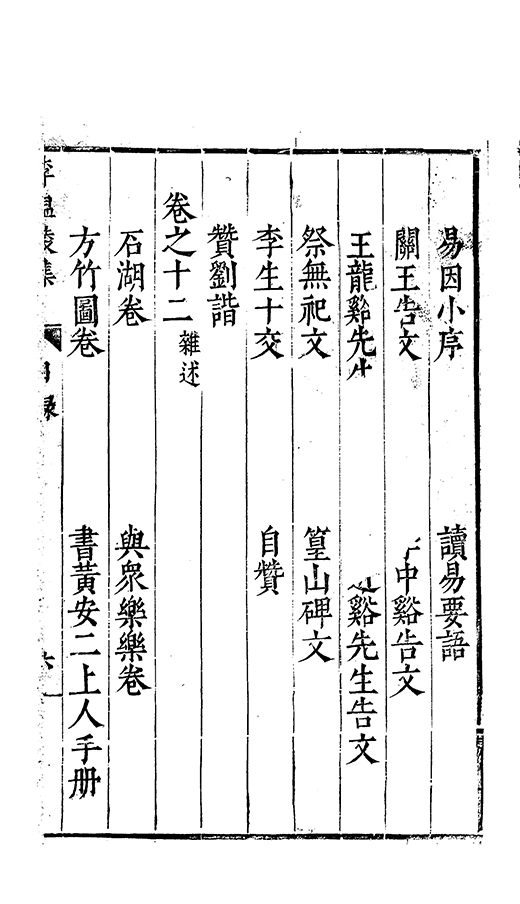 易因小序 讀易要語
關王告文 中谿告文
王龍谿先生 谿先生告文
祭無祀文 篁山碑文
李生十交 自贊
贊劉諧
卷之十二 雜述
石湖卷 與眾樂樂卷
方竹圖卷 書黃安二上人手册
李溫陵集 目錄 六